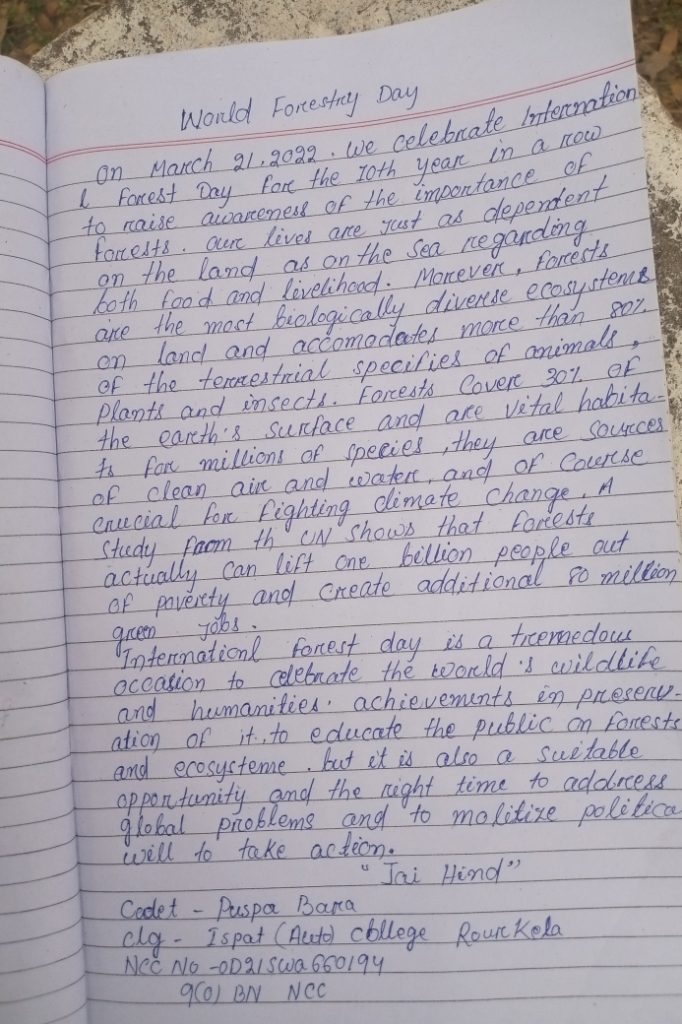 World Forestry Day
on March 21.2022. we celebrate Internation
l forest Day for the 10th year in a row
to raise awareness of the importance of
forests. our lives are just as dependent
on the land as on the sea regarding
both food and livelihood. Morever, forests
are the most biologically diverse ecosystems
on land and accomodates more than 80%
of the terrestrial specifies of animals,
plants and insects. Forests cover 30% of
the earth's surface and are vital habita-
ts for millions of species, they are sources
of clean air and water, and of course
crucial for fighting climate change. A
study from th UN shows that forests
actually can lift one billion people out
of poverty and create additional 80 million
green jobs.
Internationl forest day is a tremedous
occasion to celebrate the world's wildlife
and humanities. achievements in preserv-
ation of it, to educate the public on forests
and ecosysteme. but it is also a suitable
opportunity and the right time to address
global problems and to molitize politica
will to take action.
"Jai Hind"
Cadet - Puspa Bara
clg - Ispat (Auto) college Rourkela
NCC No -OD21SWA660194
9(O) BN NCC